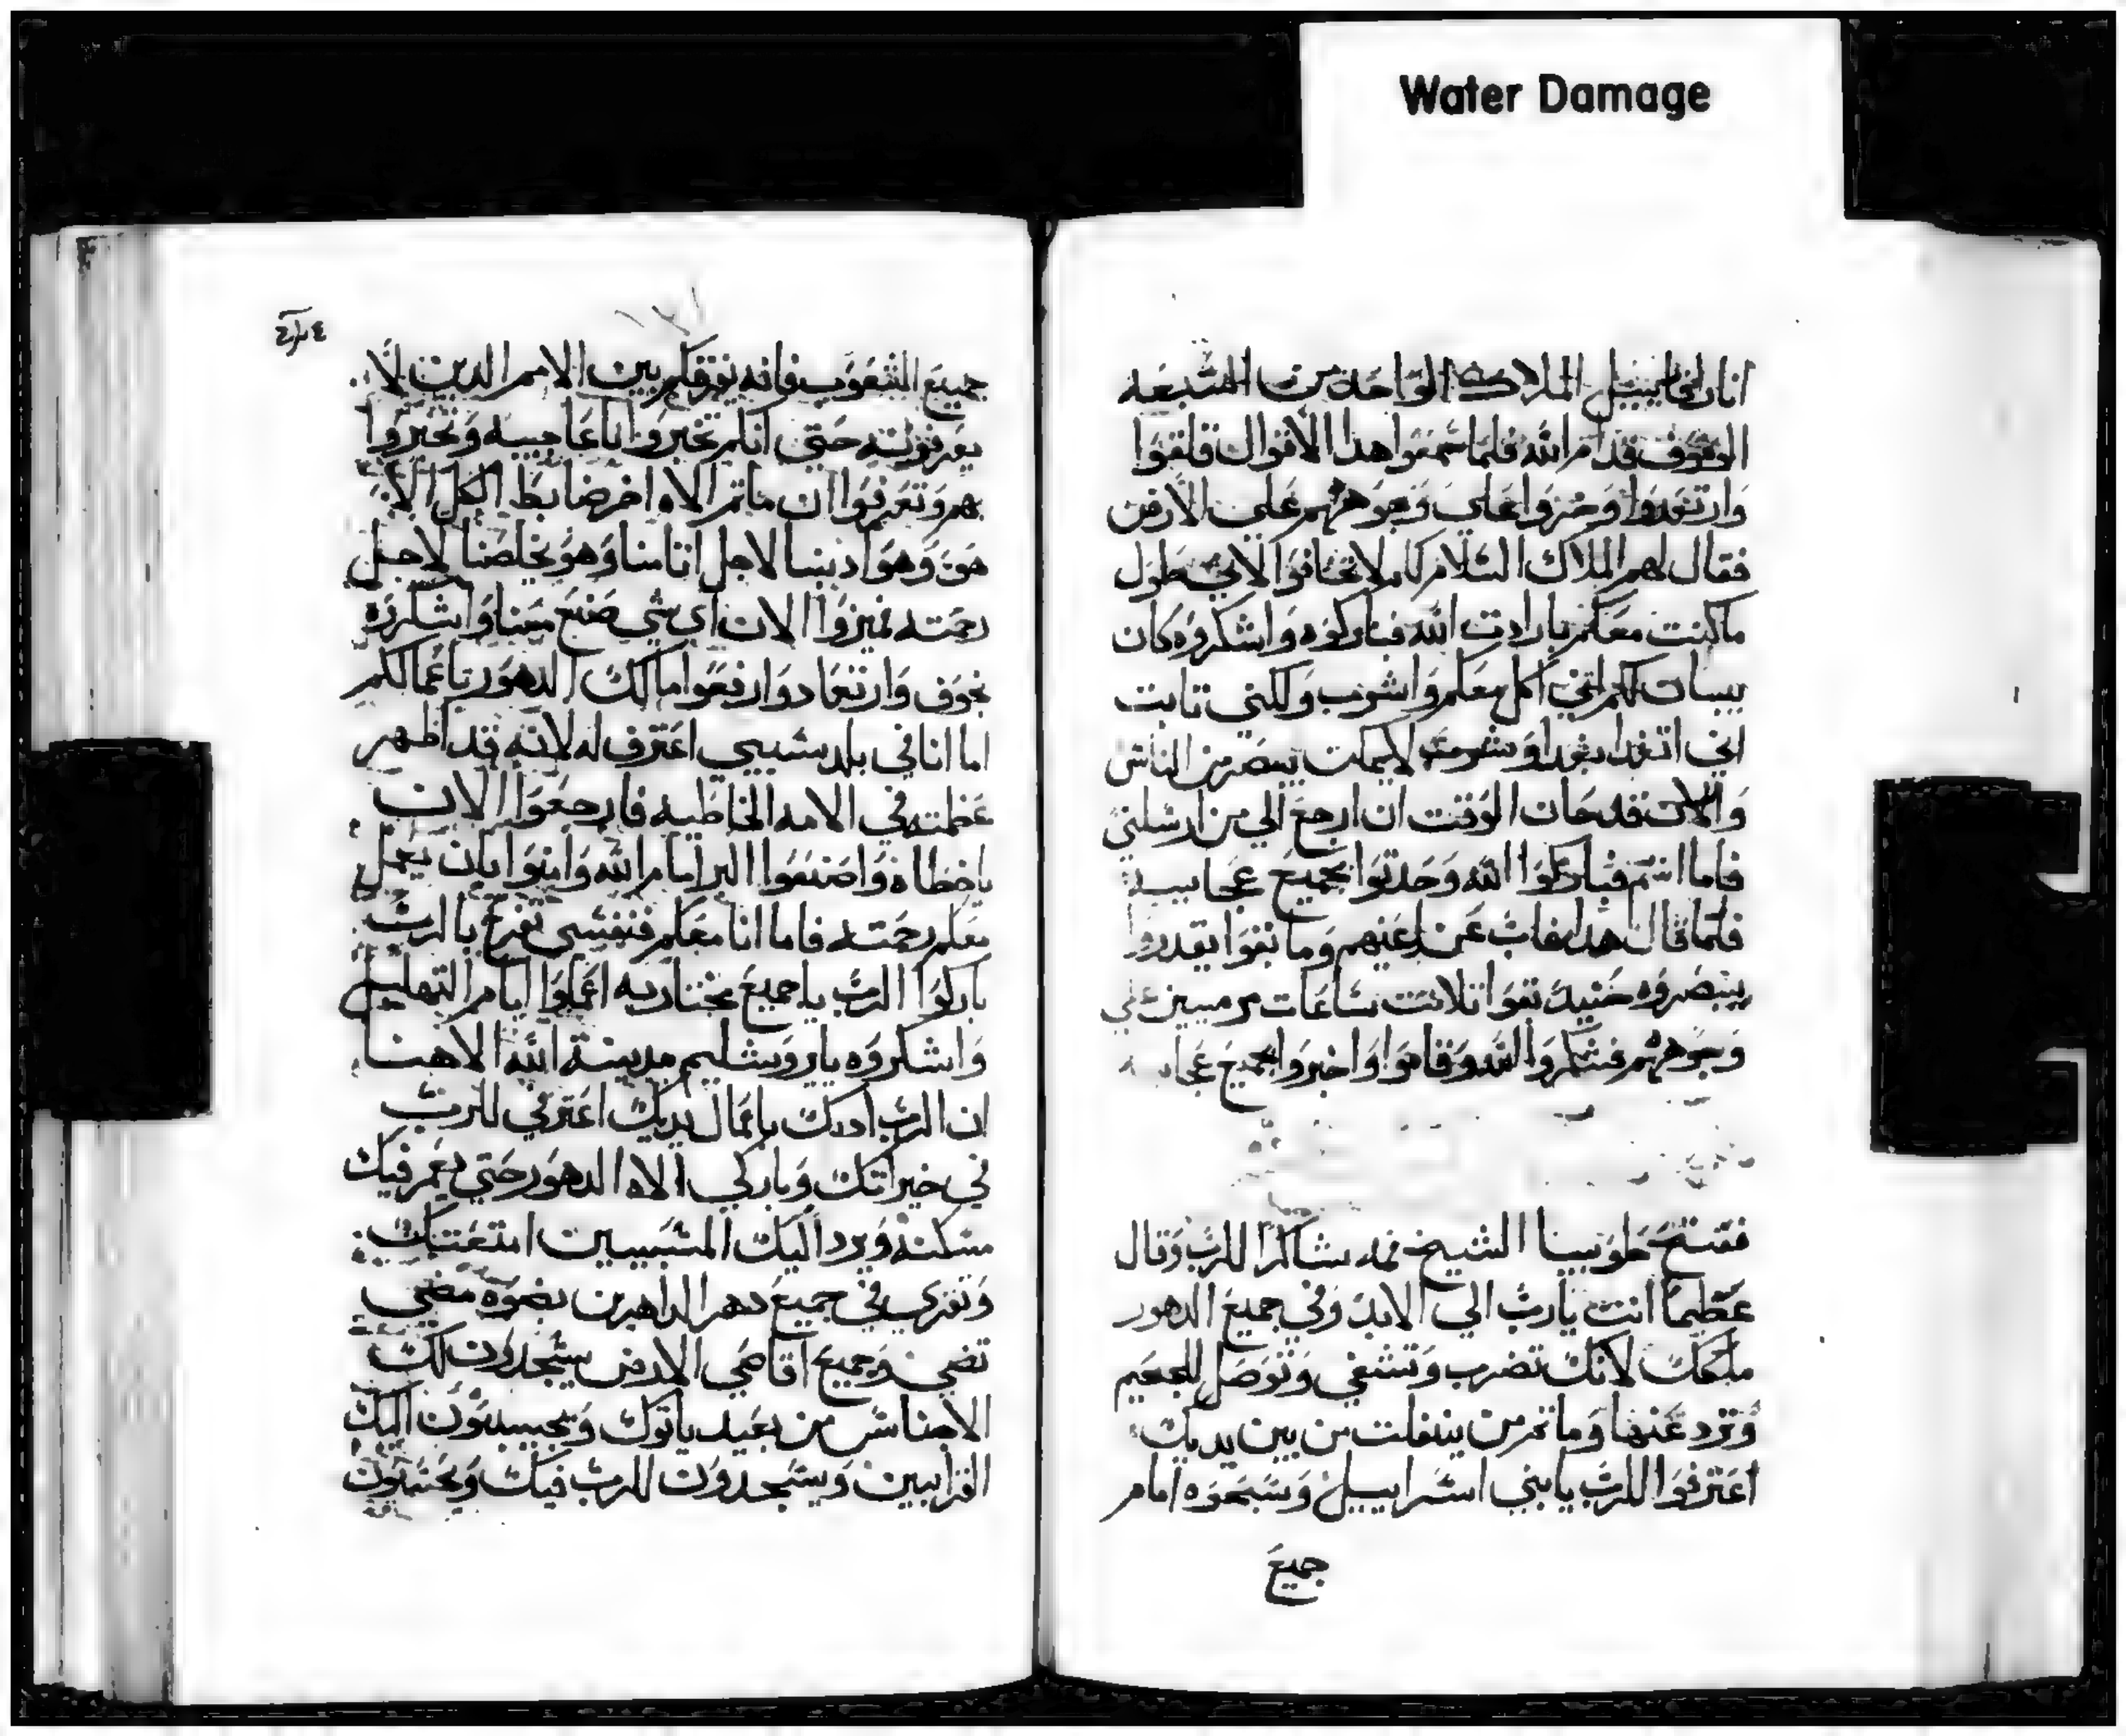 Water Damage
انا رافاييل الملاك الواحد من السبعه
الوقوف قدام الله فلما سمعوا هدا الاقوال قلقوا
وارتعدوا وخروا علي وجوههم علي الارض
فقال لهم الملاك السلام لكم لا تخافوا لاني طول
ما كنت معكم بارادت الله فباركوه واشكروه كان
يبان لكم اني اكل معكم واشرب ولكني تابت
اني اتغدا بغدا وشرب لا يمكن يبصر من الناس
والان قد حان الوقت ان ارجع الي من ارسلني
فاما انتم فباركوا الله وحدتوا بجميع عجاييبه
فلما قال هدا غاب عن اعينهم وما بقوا يقدروا
يبصروه حنيد بقوا تلاتت ساعات مرميين علي
وجوههم فشكروا الله وقاموا واخبروا بجميع عجايبه
ففتح طوبيا الشيخ فمه شاكرا للرب وقال
عظيما انت يا رب الي الابد وفي جميع الدهور
ملكك لانك تضرب وتشفي وتوصل للجحيم
وترد عنها وما تم من ينفلت من بين يديك
اعترفوا للرب يا بني اسراييل وسبحوه امام
جميع
جميع الشعوب فانه فرقكم بين الامم الدين لا
يعرفونه حتي انكم تخبروا باعاجيبه وتخبروا
بهم وتعرفوا ان ما تم الاه اخر ضابط الكل الا
هو وهو ادبنا لاجل اتامنا وهو يخلصنا لاجل
رحمته ميزوا الان اي شي صنع معنا واشكروه
بخوف وارتعاد وارفعوا مالك الدهور باعمالكم
اما انا في بلد سبيي اعترف له لانه قد اظهر
عظمته في الامه الخاطيه فارجعوا الان
يا خطاه واصنعوا البر امام الله وامنوا بان يعمل
معكم رحمته فاما انا معكم فنفسي تفرح بالرب
باركوا الرب يا جميع مختاريه اعملوا ايام التهليل
واشكروه يا روشليم مدينة الله الاهنا
ان الرب ادبك باعمال يديك اعترفي للرب
في خيراتك وباركي الاه الدهور حتي يعمر فيك
مسكنه ويرد اليك المسبيين امتعتك
وتفرحي في جميع دهر الداهرين بضوه مضي
تضي وجميع اقاصي الارض يسجدون لك
الاجناس من بعيد ياتوك ويجيبون اليك
القرابين ويسجدون للرب فيك ويحتسبون